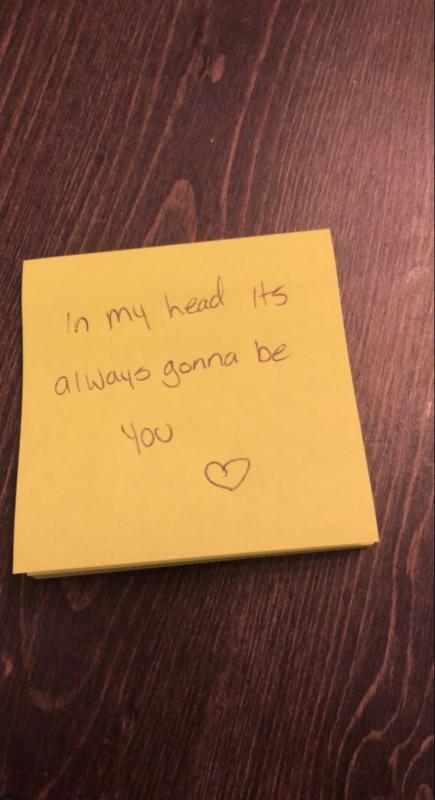 In my head its
always gonna be
you